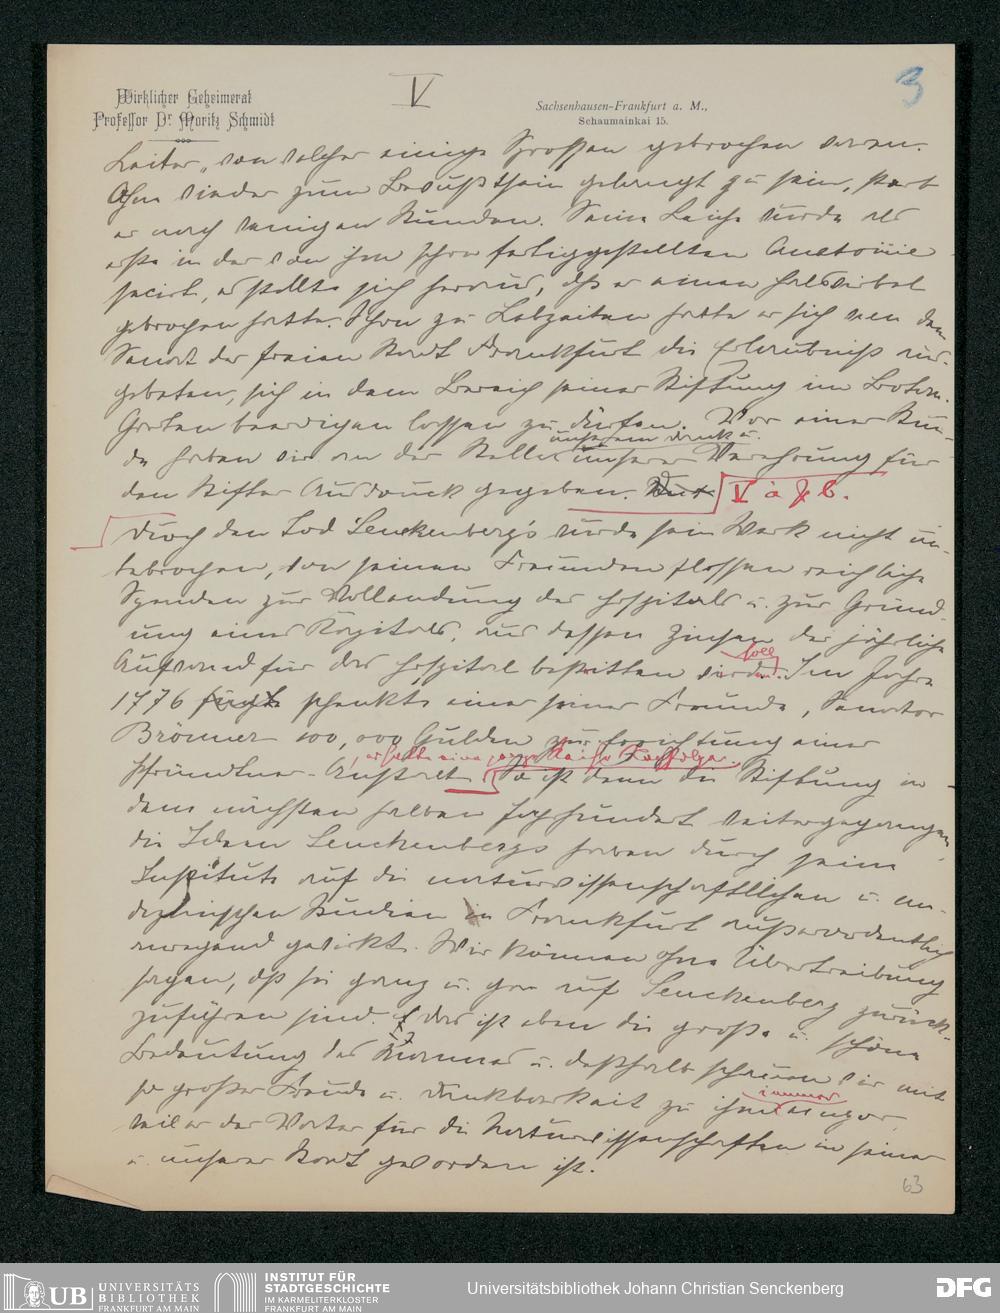 Wirklicher Geheimerat
Professor Dr. Moritz Schmidt
V
3
Sachsenhausen-Frankfurt a. M.,
Schaumainkai 15.
Leiter, von welcher einige Sprossen gebrochen waren.
Ohne wieder zum Bewußtsein gelangt zu sein, starb
er nach wenigen Stunden. Seine Leiche wurde als
erste in der von ihm schon fertiggestellten Anatomie
secirt, es stellte sich heraus, dß er einen Halswirbel
gebrochen hatte. Schon zu Lebzeiten hatte er sich von dem
Senat der freien Stadt Frankfurt die Erlaubniß aus-
gebeten, sich in dem Bereich seiner Stiftung im Botan.
Garten beerdigen lassen zu dürfen. Vor einer Stun-
unserem Dank u.
de haben wir an der Stelle unserer Verehrung für
den Stifter Ausdruck gegeben. V a & b.
Durch den Tod Senckenberg's wurde sein Werk nicht un-
terbrochen, von seinen Freunden flossen reichliche
Spenden zur Vollendung des Hospitals u. zur Gründ-
ung eines Kapitals, aus dessen Zinsen der jährliche
soll
Aufwand für das Hospital bestritten werden. Im Jahre
1776 schenkte einer seiner Freunde, Senator
Brönner 100,000 Gulden zur Errichtung einer
Pfründner-Anstalt So ist denn die Stiftung in
dem nächsten halben Jahrhundert weitergegangen,
die Ideen Senckenbergs haben durch seine
Institute auf die naturwissenschaftlichen u. me-
dizinischen Studien in Frankfurt außerordentlich
anregend gewirkt. Wir können ohne Übertreibung
sagen, dß sie ganz u. gar auf Senckenberg zurück-
zuführen sind. Das ist eben die große u. schöne
Bedeutung des Mannes u. deßhalb schauen wir mit
immer
so großer Freude u. Dankbarkeit zu ihm empor,
weil er der Vater für die Naturwissenschaften in seiner
u. unserer Stadt geworden ist.
63
UB UNIVERSITÄTS
BIBLIOTHEK
FRANKFURT AM MAIN
INSTITUT FÜR
STADTGESCHICHTE
IM KARMELITERKLOSTER
FRANKFURT AM MAIN
Universitätsbibliothek Johann Christian Senckenberg
DFG